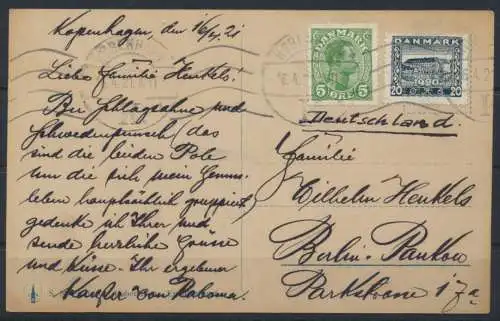 Kopenhagen, den 16/4. 21
Liebe Familie Henkels!
Bei Schlagsahne und
Schwedenpunsch (das
sind die beiden Pole
um die sich mein Genuss-
leben hauptsächlich gruppiert,
gedenke ich Ihrer und
sende herzliche Grüsse
und Küsse. Ihr ergebener
von
DANMARK
5 ØRE 5
DANMARK
1920
20 20
Deutschland.
Familie
Wilhelm Henkels
Berlin-Pankow
Parkstrasse 17a